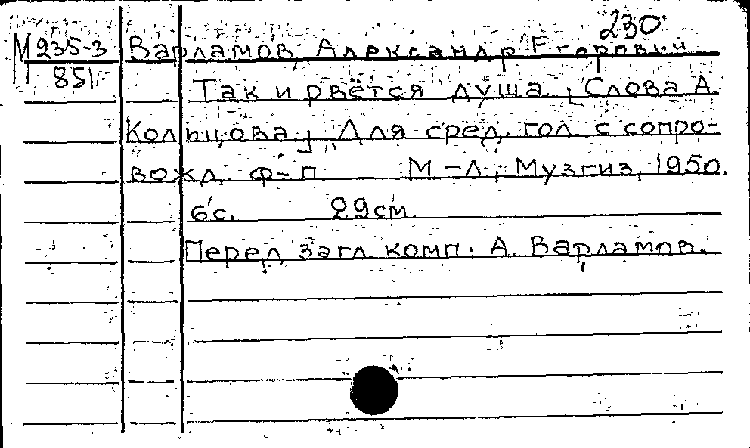 230
М 235-3 Варламов, Александр Егорович
851 Так и рвётся душа. [Слова А.
Кольцова.] Для сред. гол. с сопро-
вожд. ф-п. М.-Л., Музгиз, 1950.
6 с. 29 см.
Перед загл. комп. А. Варламов.